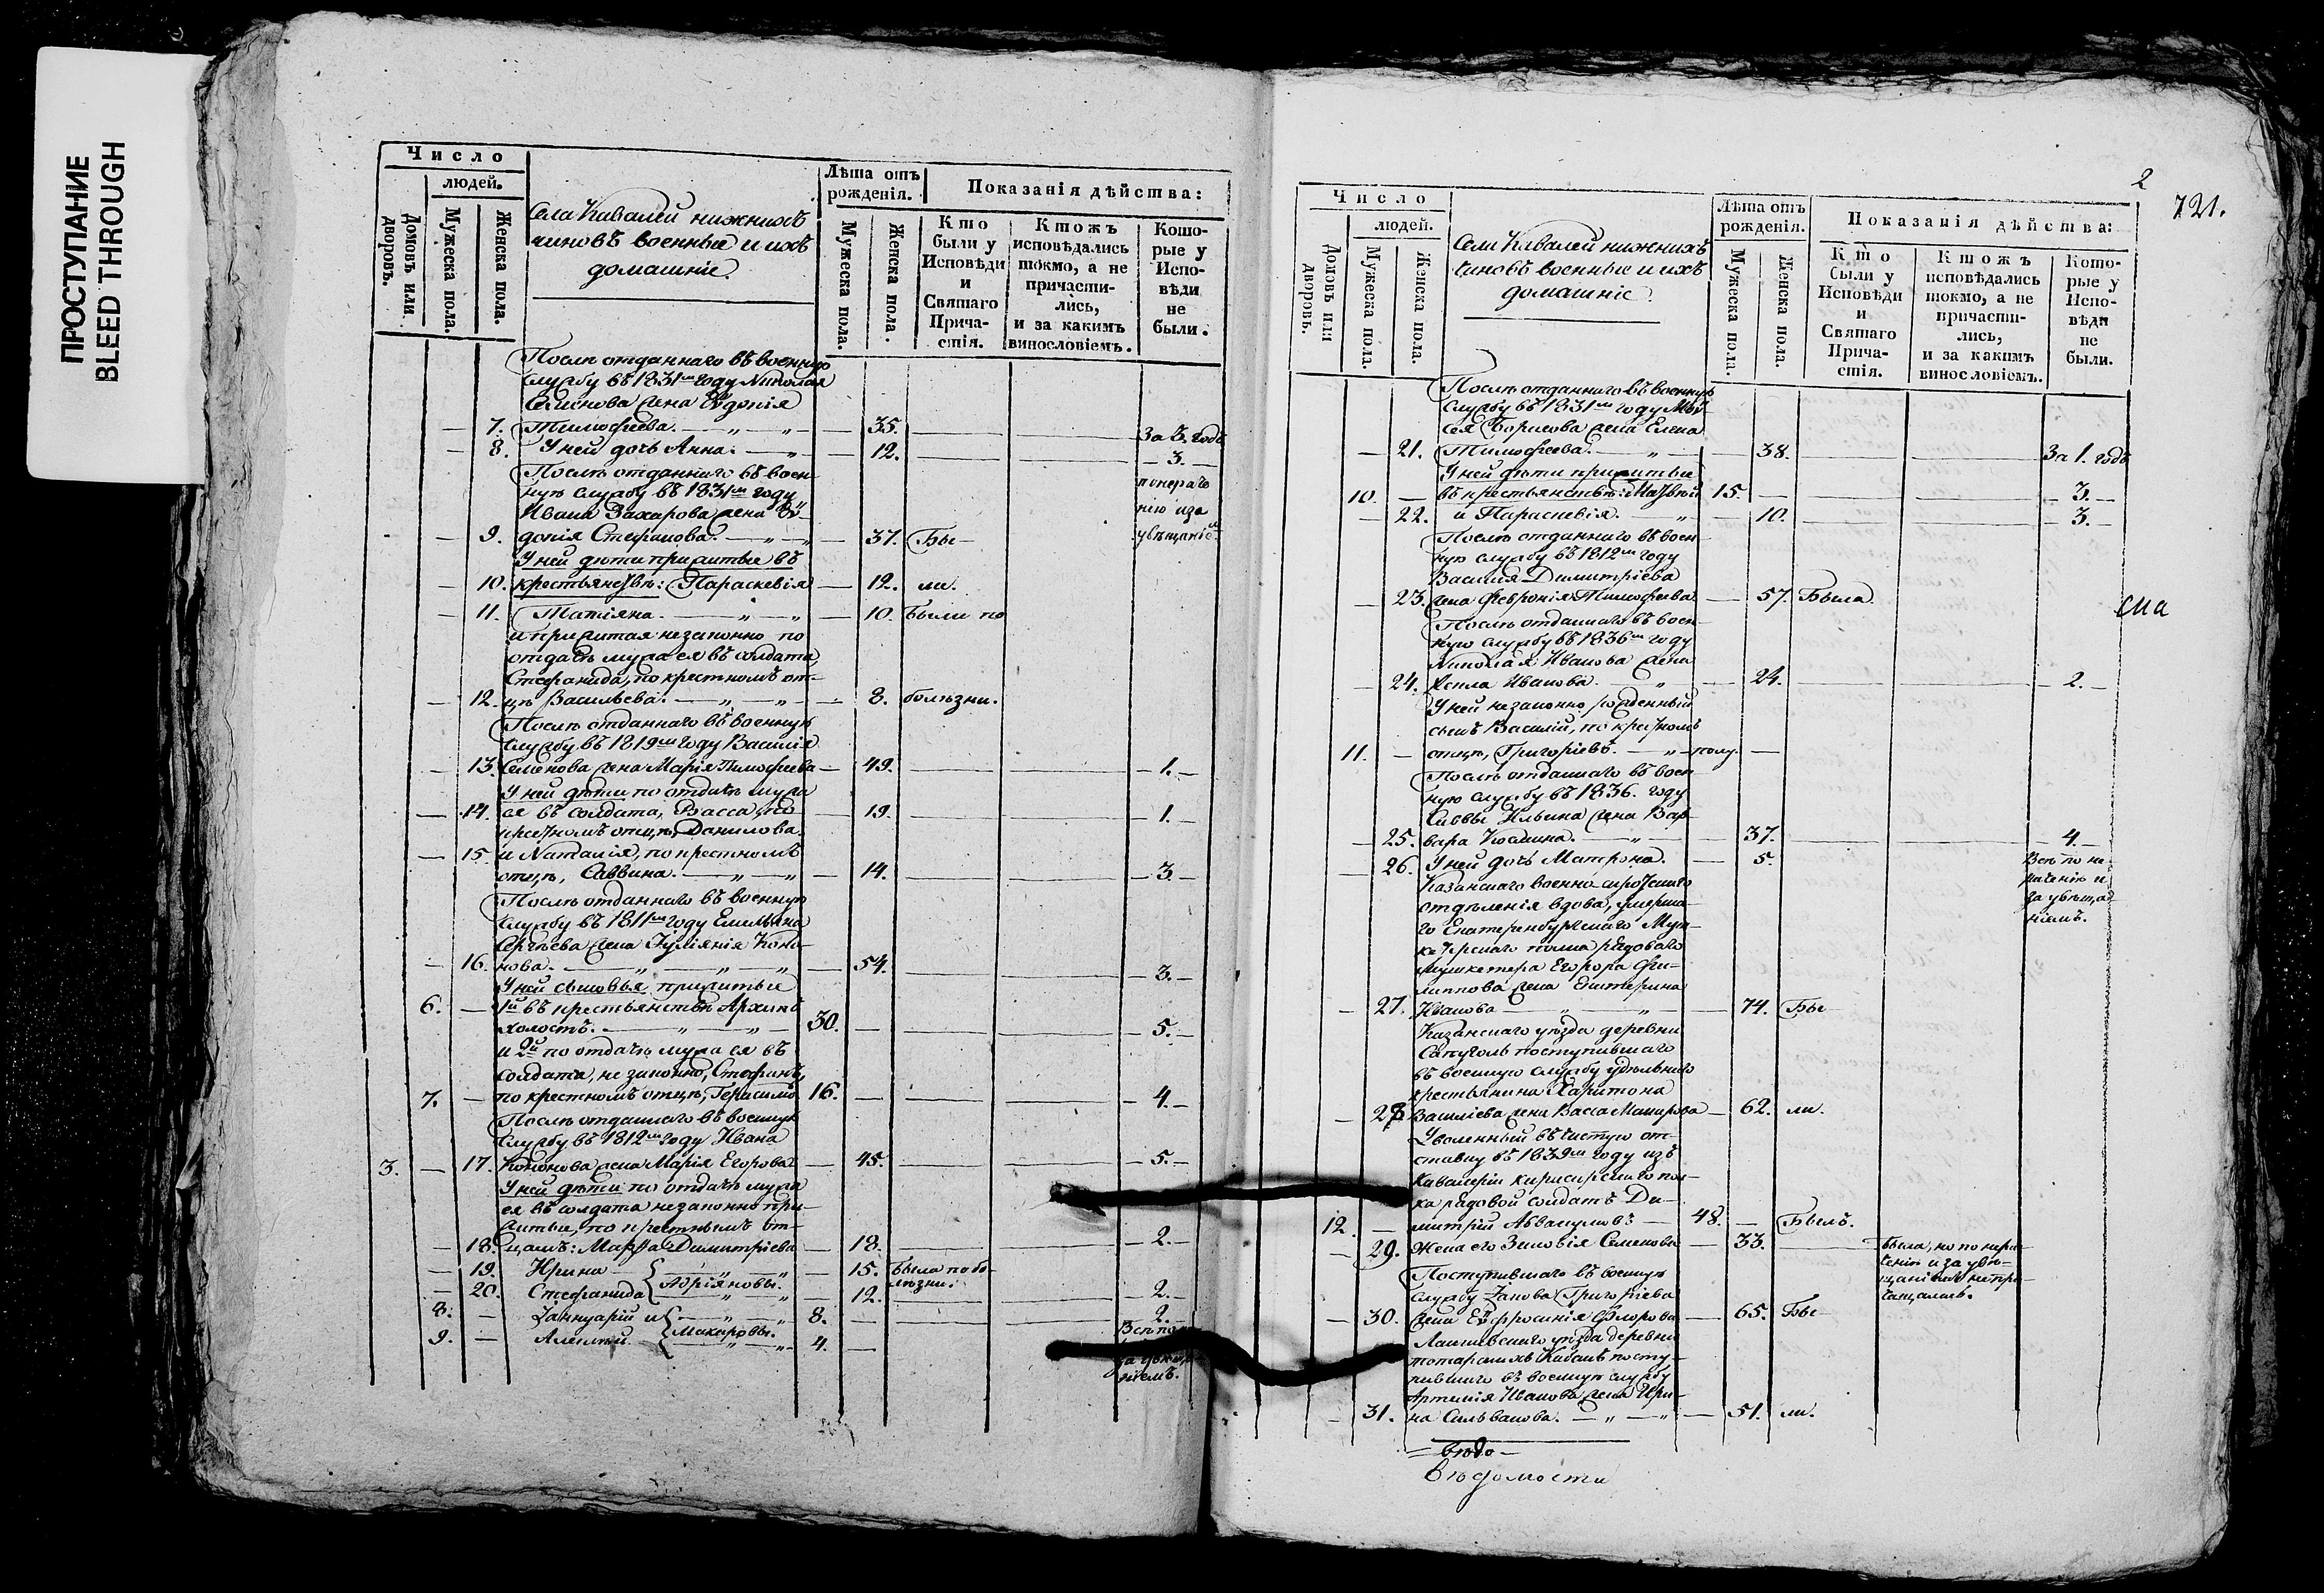 ПРОСТУПАНИЕ
BLEED THROUGH
Число
людей.
Домовъ или дворовъ.
Мужеска пола.
Женска пола.
Села Кавалей нижнихъ
чиновъ военные и ихъ
домашніе
Лѣта отъ
рожденія.
Мужеска пола.
Женска пола.
Показанія дѣйства:
Кто
были у
Исповѣди
и
Святаго
Прича-
стія.
Ктожъ
исповѣдались
токмо, а не
причасти-
лись,
и за какимъ
винословіемъ.
Кото-
рые у
Испо-
вѣди
не
были.
Послѣ отданнаго въ военную
службу въ 1831мъ году Николая
Семенова жена Евдокія
7. Тимофеева. 35. За 3. годъ
8. У ней дочь Анна. 12. 3.
Послѣ отданнаго въ воен-
ную службу въ 1831мъ году
Ивана Захарова жена Ев-
9. докія Стефанова. 37. Бы-
У ней дѣти прижитые въ
10. крестьянствѣ: Параскевія 12. ли.
11. Татіяна. 10. Были по
и прижитая незаконно по
отдачѣ мужа ея въ солдата,
Стефанида, по крестномъ от-
12. цѣ Васильева. 8. болѣзни.
Послѣ отданнаго въ военную
службу въ 1819мъ году Василія
13. Семенова жена Марія Тимофеева 49. 1.
У ней дѣти по отдачѣ мужа
14. ея въ солдата, Васса, по 19. 1.
крестномъ отцѣ, Данилова.
15. и Наталія, по крестномъ
отцѣ, Саввина. 14. 3.
Послѣ отданнаго въ военную
службу въ 1811мъ году Емельяна
Сергѣева жена Іуліянія Коно-
16. нова. 54. 3.
У ней сыновья прижитые
6. 1й въ крестьянствѣ Архипъ
холостъ. 30. 5.
и 2й по отдачѣ мужа ея въ
солдата, не законно, Стефанъ,
7. по крестномъ отцѣ, Герасимо 16. 4.
Послѣ отданнаго въ военную
службу въ 1812мъ году Ивана
3. 17. Кононова жена Марія Егорова 45. 5.
У ней дѣти по отдачѣ мужа
ея въ солдата незаконно при-
житые, по крестнымъ от-
18. цамъ: Марфа Димитріева 18. 2.
19. Ирина 15. Была по бо-
лѣзни.
20. Стефанида Адріяновы. 12. 2.
8. Іаннуарій и 8. 2.
9. Алексѣй Макаровы. 4. Всѣ по
2
721.
Число
людей.
Домовъ или дворовъ.
Мужеска пола.
Женска пола.
Села Кавалей нижнихъ
чиновъ военные и ихъ
домашніе
Лѣта отъ
рожденія.
Мужеска пола.
Женска пола.
Показанія дѣйства:
Кто
были у
Исповѣди
и
Святаго
Прича-
стія.
Ктожъ
исповѣдались
токмо, а не
причасти-
лись,
и за какимъ
винословіемъ.
Кото-
рые у
Испо-
вѣди
не
были.
Послѣ отданнаго въ военную
службу въ 1831мъ году Мои-
сея Борисова жена Елена
21. Тимофеева. 38. За 1. годъ
У ней дѣти прижитые
10. въ крестьянствѣ: Матвѣй 15. 3.
22. и Параскевія. 10. 3.
Послѣ отданнаго въ воен-
ную службу въ 1812мъ году
Василія Димитріева
23. жена Февронія Тимофеева 57. Была.
Послѣ отданнаго въ воен-
ную службу въ 1836мъ году
Николая Иванова жена
24. Иванова. 24. 2.
У ней незаконно рожденный
сынъ Василій, по крестномъ
11. отцѣ, Григорьевъ. полу.
Послѣ отданнаго въ воен-
ную службу въ 1836. году
Саввы Ильина жена Вар-
25. вара Козмина. 37. 4.
26. У ней дочь Матрона. 5. Всѣ по не-
раченію и
за увѣща-
ніемъ.
Казанскаго военно-сиротскаго
отдѣленія вдова, умерша-
го Екатеринбургскаго Муш-
кетерскаго полка рядоваго
мушкетера Егора Фи-
липпова жена Екатерина
27. Иванова 74. Бы-
Казанскаго уѣзда деревни
поступившаго
въ военную службу удѣльнаго
крестьянина Харитона
28. Василіева жена Васса Макарова 62. ли.
Уволенный въ чистую от-
ставку въ 1839мъ году изъ
кавалеріи кирасирскаго пол-
ка рядовой солдатъ Ди-
12. митрій Аввакумовъ 48. Былъ.
29. Жена его Зиновія Семенова 33. Была, но по нера-
ченію и за увѣ-
щаніемъ не при-
чащалась.
Поступившаго въ военную
службу Іакова Григорьева
30. жена Евфросинія Флорова 65. Бы-
Лаишевскаго уѣзда деревни
татарскихъ Кабанъ посту-
пившаго въ военную службу
Артемія Иванова жена Ири-
31. на Сильванова. 51. ли.
вѣдо-
вѣдомости